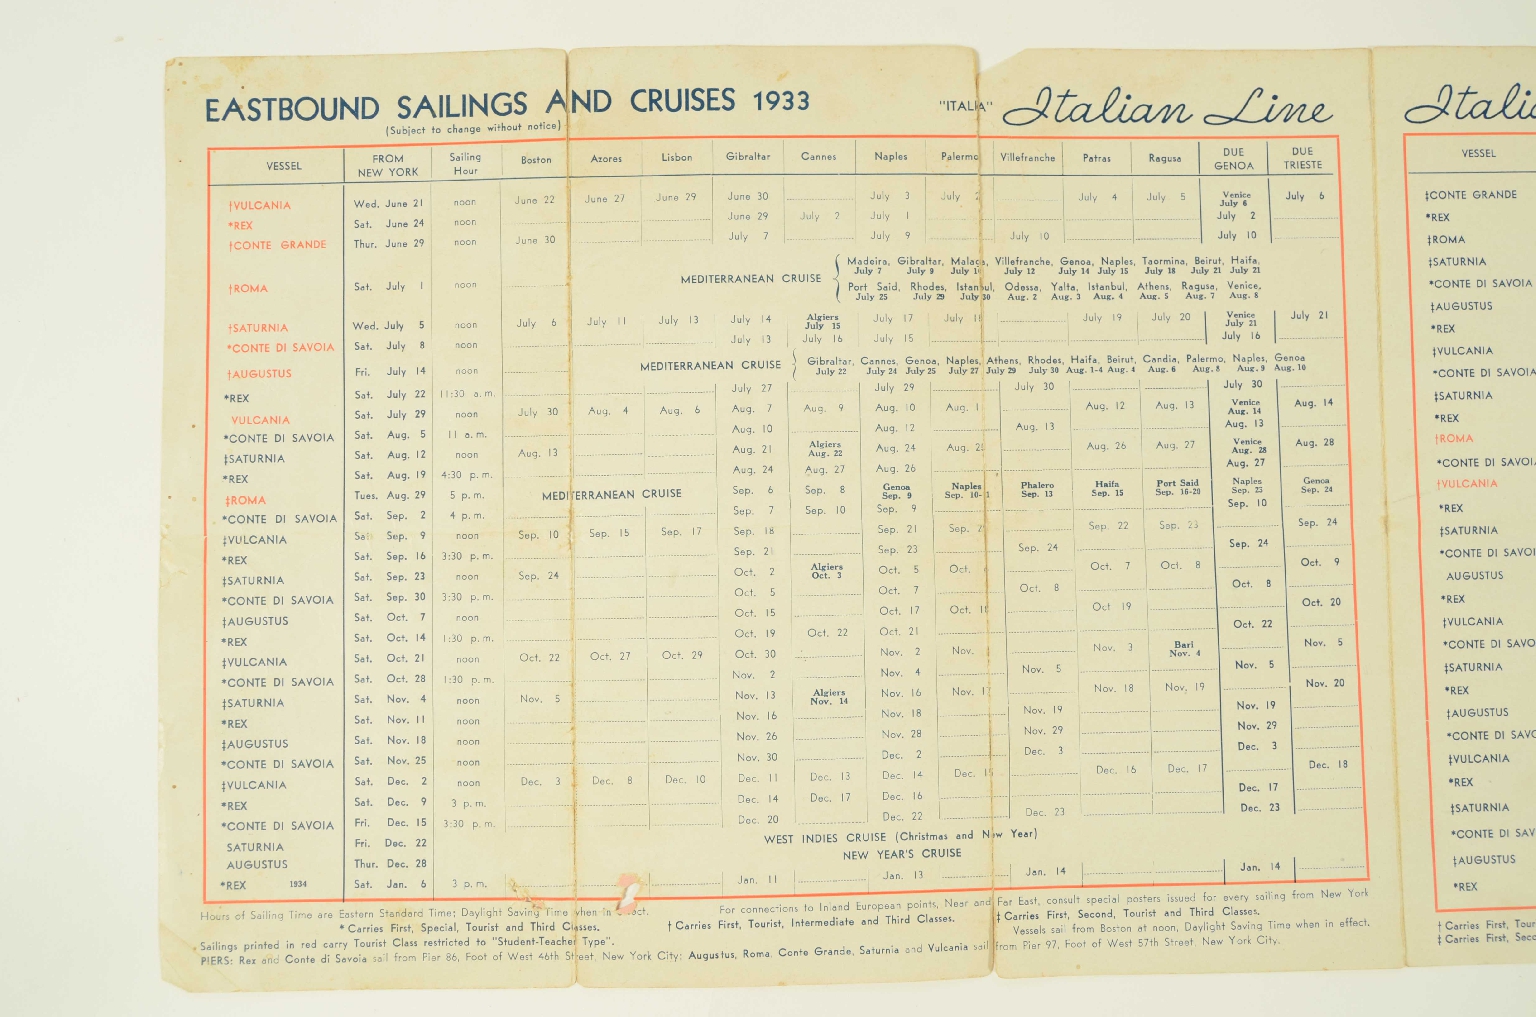 EASTBOUND SAILINGS AND CRUISES 1933 "ITALIA" Italian Line
(Subject to change without notice)
VESSEL FROM NEW YORK Sailing Hour Boston Azores Lisbon Gibraltar Cannes Naples Palermo Villefranche Patras Ragusa DUE GENOA DUE TRIESTE
†VULCANIA Wed. June 21 noon June 22 June 27 June 29 June 30 July 3 July 2 July 4 July 5 Venice July 6 July 6
*REX Sat. June 24 noon June 29 July 2 July 1 July 2
†CONTE GRANDE Thur. June 29 noon June 30 July 7 July 9 July 10 July 10
†ROMA Sat. July 1 noon MEDITERRANEAN CRUISE
Madeira, Gibraltar, Malaga, Villefranche, Genoa, Naples, Taormina, Beirut, Haifa,
July 7 July 9 July 10 July 12 July 14 July 15 July 18 July 21 July 21
Port Said, Rhodes, Istanbul, Odessa, Yalta, Istanbul, Athens, Ragusa, Venice,
July 25 July 29 July 30 Aug. 2 Aug. 3 Aug. 4 Aug. 5 Aug. 7 Aug. 8
†SATURNIA Wed. July 5 noon July 6 July 11 July 13 July 14 Algiers July 15 July 17 July July 19 July 20 Venice July 21 July 21
*CONTE DI SAVOIA Sat. July 8 noon July 13 July 16 July 15 July 16
†AUGUSTUS Fri. July 14 noon MEDITERRANEAN CRUISE
Gibraltar, Cannes, Genoa, Naples, Athens, Rhodes, Haifa, Beirut, Candia, Palermo, Naples, Genoa
July 22 July 24 July 25 July 27 July 29 July 30 Aug. 1-4 Aug. 4 Aug. 6 Aug. 8 Aug. 9 Aug. 10
*REX Sat. July 22 11:30 a.m. July 27 July 29 July 30 July 30
VULCANIA Sat. July 29 noon July 30 Aug. 4 Aug. 6 Aug. 7 Aug. 9 Aug. 10 Aug. Aug. 12 Aug. 13 Venice Aug. 14 Aug. 14
*CONTE DI SAVOIA Sat. Aug. 5 11 a.m. Aug. 10 Aug. 12 Aug. 13 Aug. 13
‡SATURNIA Sat. Aug. 12 noon Aug. 13 Aug. 21 Algiers Aug. 22 Aug. 24 Aug. Aug. 26 Aug. 27 Venice Aug. 28 Aug. 28
*REX Sat. Aug. 19 4:30 p.m. Aug. 24 Aug. 27 Aug. 26 Aug. 27
‡ROMA Tues. Aug. 29 5 p.m. MEDITERRANEAN CRUISE Sep. 6 Sep. 8 Genoa Sep. 9 Naples Sep. 10-11 Phalero Sep. 13 Haifa Sep. 15 Port Said Sep. 16-20 Naples Sep. 23 Genoa Sep. 24
*CONTE DI SAVOIA Sat. Sep. 2 4 p.m. Sep. 7 Sep. 10 Sep. 9 Sep. 10
‡VULCANIA Sat. Sep. 9 noon Sep. 10 Sep. 15 Sep. 17 Sep. 18 Sep. 21 Sep. Sep. 22 Sep. 23 Sep. 24
*REX Sat. Sep. 16 3:30 p.m. Sep. 21 Sep. 23 Sep. 24 Sep. 24
‡SATURNIA Sat. Sep. 23 noon Sep. 24 Oct. 2 Algiers Oct. 3 Oct. 5 Oct. Oct. 7 Oct. 8 Oct. 9
*CONTE DI SAVOIA Sat. Sep. 30 3:30 p.m. Oct. 5 Oct. 7 Oct. 8 Oct. 8
‡AUGUSTUS Sat. Oct. 7 noon Oct. 15 Oct. 17 Oct. Oct 19 Oct. 20
*REX Sat. Oct. 14 1:30 p.m. Oct. 19 Oct. 22 Oct. 21 Oct. 22
‡VULCANIA Sat. Oct. 21 noon Oct. 22 Oct. 27 Oct. 29 Oct. 30 Nov. 2 Nov. Nov. 3 Bari Nov. 4 Nov. 5
*CONTE DI SAVOIA Sat. Oct. 28 1:30 p.m. Nov. 2 Nov. 4 Nov. 5 Nov. 5
‡SATURNIA Sat. Nov. 4 noon Nov. 5 Nov. 13 Algiers Nov. 14 Nov. 16 Nov. Nov. 18 Nov, 19 Nov. 20
*REX Sat. Nov. 11 noon Nov. 16 Nov. 18 Nov. 19 Nov. 19
‡AUGUSTUS Sat. Nov. 18 noon Nov. 26 Nov. 28 Nov. 29 Nov. 29
*CONTE DI SAVOIA Sat. Nov. 25 noon Nov. 30 Dec. 2 Dec. 3 Dec. 3
‡VULCANIA Sat. Dec. 2 noon Dec. 3 Dec. 8 Dec. 10 Dec. 11 Dec. 13 Dec. 14 Dec. Dec. 16 Dec. 17 Dec. 18
*REX Sat. Dec. 9 3 p.m. Dec. 14 Dec. 17 Dec. 16 Dec. 17
*CONTE DI SAVOIA Fri. Dec. 15 3:30 p.m. Dec. 20 Dec. 22 Dec. 23 Dec. 23
SATURNIA Fri. Dec. 22 WEST INDIES CRUISE (Christmas and New Year)
AUGUSTUS Thur. Dec. 28 NEW YEAR'S CRUISE
*REX 1934 Sat. Jan. 6 3 p.m. Jan. 11 Jan. 13 Jan. 14 Jan. 14
Hours of Sailing Time are Eastern Standard Time; Daylight Saving Time when in effect. For connections to Inland European points, Near and Far East, consult special posters issued for every sailing from New York
* Carries First, Special, Tourist and Third Classes. † Carries First, Tourist, Intermediate and Third Classes. ‡ Carries First, Second, Tourist and Third Classes.
Sailings printed in red carry Tourist Class restricted to "Student-Teacher Type". Vessels sail from Boston at noon, Daylight Saving Time when in effect.
PIERS: Rex and Conte di Savoia sail from Pier 86, Foot of West 46th Street, New York City; Augustus, Roma, Conte Grande, Saturnia and Vulcania sail from Pier 97, Foot of West 57th Street, New York City.
Itali
VESSEL
‡CONTE GRANDE
*REX
‡ROMA
‡SATURNIA
*CONTE DI SAVOIA
‡AUGUSTUS
*REX
‡VULCANIA
*CONTE DI SAVO
‡SATURNIA
*REX
†ROMA
*CONTE DI SAVO
†VULCANIA
*REX
‡SATURNIA
*CONTE DI SAVOI
AUGUSTUS
*REX
‡VULCANIA
*CONTE DI SAVO
‡SATURNIA
*REX
‡AUGUSTUS
*CONTE DI SAVO
‡VULCANIA
*REX
‡SATURNIA
*CONTE DI SAV
‡AUGUSTUS
*REX
† Carries First, Tour
‡ Carries First, Seco